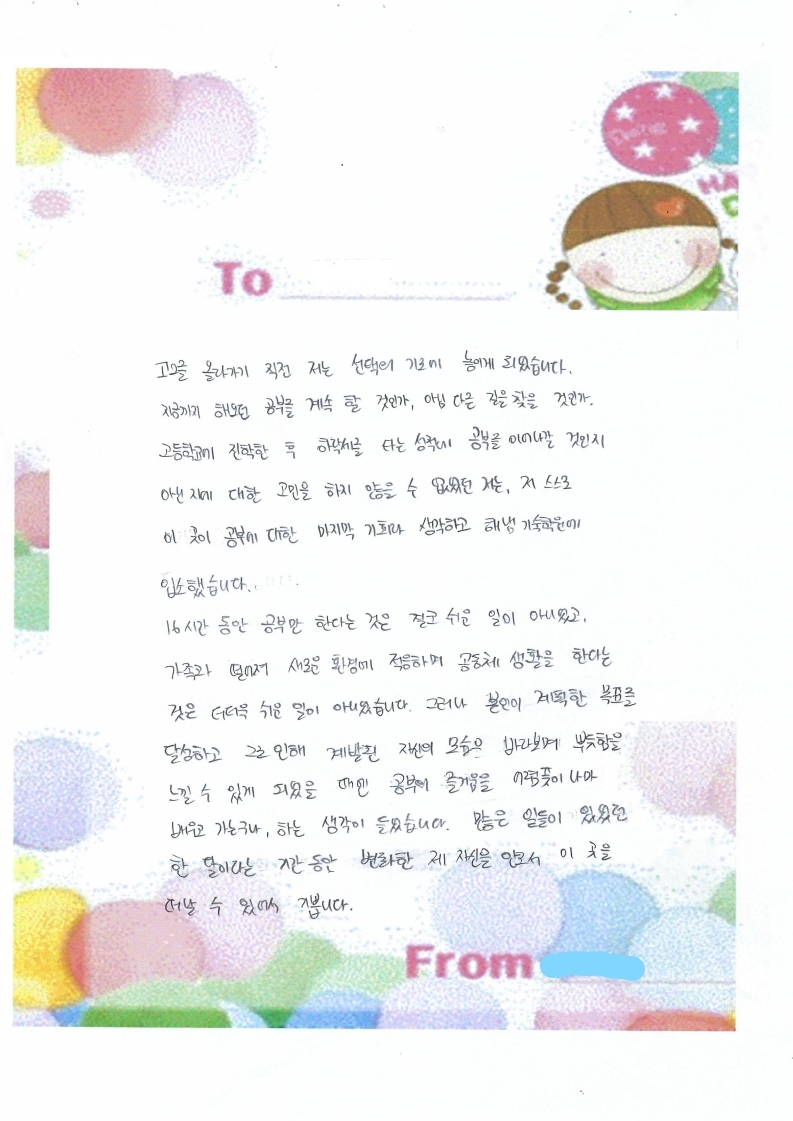 HA
D
To
고1을 올라가기 직전 저는 선택의 기로에 놓이게 되었습니다.
지금까지 해오던 공부를 계속 할 것인가, 아님 다른 길을 찾을 것인가.
고등학교에 진학한 후 하락세를 타는 성적에 공부를 이어나갈 것인지
아닌지에 대한 고민을 하지 않을 수 없었던 저는, 저 스스로
이 곳이 공부에 대한 마지막 기회라 생각하고 해냄기숙학원에
입소했습니다.
16시간 동안 공부만 한다는 것은 결코 쉬운 일이 아니었고,
가족과 떨어져 새로운 환경에 적응하며 공동체 생활을 한다는
것은 더더욱 쉬운 일이 아니었습니다. 그러나 본인이 계획한 목표를
달성하고 그로 인해 계발된 자신의 모습을 바라보며 뿌듯함을
느낄 수 있게 되었을 때엔 공부의 즐거움을 어렴풋이 나마
배우고 가는구나, 하는 생각이 들었습니다. 많은 일들이 있었던
한 달이라는 기간 동안 변화한 제 자신을 안고서 이 곳을
떠날 수 있어서 기쁩니다.
From